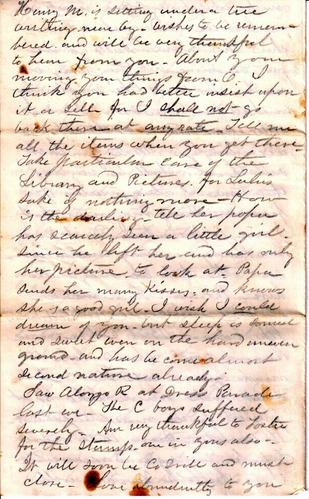 Henry M. is sitting under a tree
writing near by - wishes to be remem-
bered. and will be very thankful
to hear from you - About your
moving your things from C. I
think you had better insist upon
it for I shall not go
back there at any rate. Tell me
all the items when you get there
Take particular care of the
Library and Pictures. for Lulu's
sake if nothing more - How
is the darling. tell her papa
has scarcely seen a little girl
since he left her and has only
her picture to look at Papa
sends her many kisses - and knows
she is a good girl - I wish I could
dream of you - but sleep is sound
and sweet even on the hard uneven
ground - and has become almost
second nature already -
Saw Alonzo R at Dress Parade
last eve - The C boys suffered
severely - Am very thankful to
for the Stamps - one in yours also -
It will soon be Co Drill and must
close - Love to you